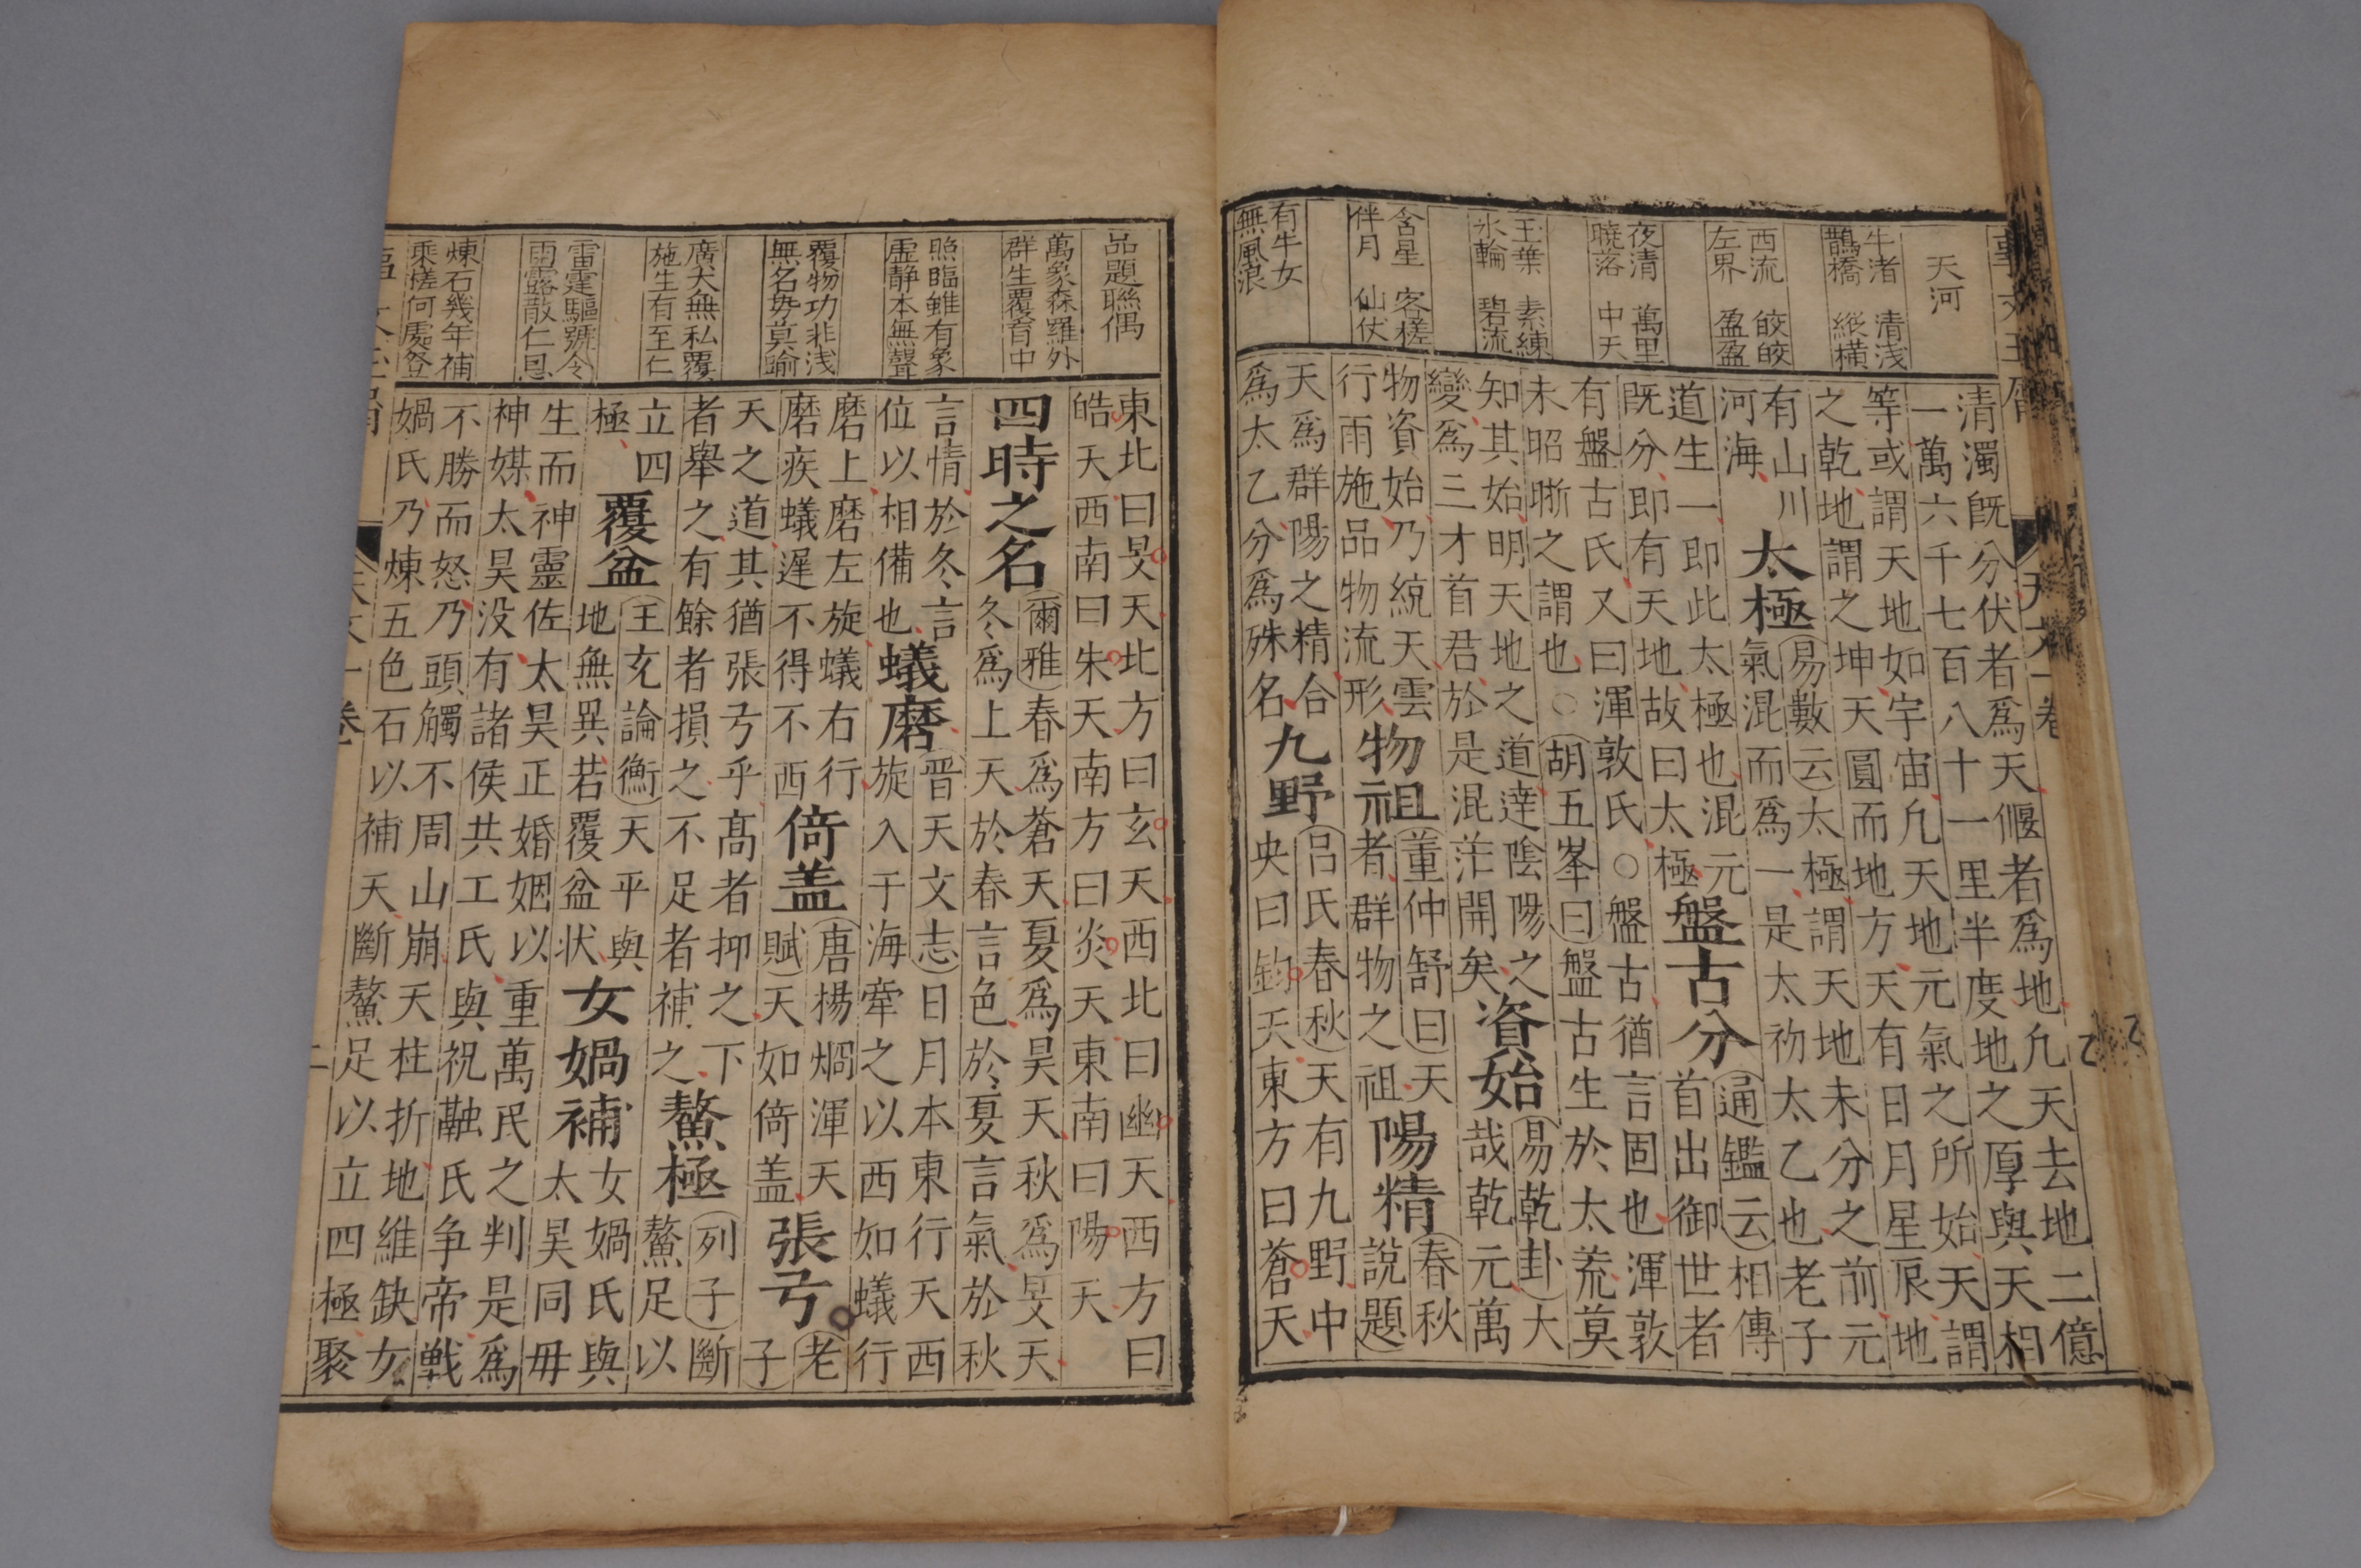 天河
牛渚 清浅
鵲橋 縱横
西流 皎皎
左界 盈盈
夜清 萬里
曉落 中天
玉葉 素練
氷輪 碧流
含星 客槎
伴月 仙伏
有牛女
無風浪
天文一卷
清濁旣分伏者爲天偃者爲地凢天去地二億
一萬六千七百八十一里半度地之厚與天相
等或謂天地如宇宙凢天地元氣之所始天謂
之乾地謂之坤天圓而地方天有日月星辰地
有山川
河海
太極
易數云太極謂天地未分之前元
氣混而爲一是太初太乙也老子
道生一即此太極也混元
旣分即有天地故曰太極
盤古分
通鑑云相傳
首出御世者
有盤古氏又曰渾敦氏○盤古猶言固也渾敦
未昭晣之謂也○胡五峯曰盤古生於太荒莫
知其始明天地之道達陰陽之
變爲三才首君於是混茫開矣
資始
易乾卦大
哉乾元萬
物資始乃統天雲
行雨施品物流形
物祖
董仲舒曰天
者群物之祖
陽精
春秋
說題
天爲群陽之精合
爲太乙分爲殊名
九野
呂氏春秋天有九野中
央曰鈞天東方曰蒼天
品題聯偶
萬象森羅外
群生覆育中
照臨雖有象
虛靜本無聲
覆物功非浅
無名毋莫喻
廣大無私覆
施生有至仁
雷霆驅號令
雨露散仁恩
煉石幾年補
乘槎何處登
東北曰旻天北方曰玄天西北曰幽天西方曰
皓天西南曰朱天南方曰炎天東南曰陽天
四時之名
爾雅春爲蒼天夏爲昊天秋爲旻天
冬爲上天於春言色於夏言氣於秋
言情於冬言
位以相備也
蟻磨
晋天文志日月本東行天西
旋入于海牽之以西如蟻行
磨上磨左旋蟻右行
磨疾蟻遲不得不西
倚盖
唐楊烱渾天
賦天如倚盖
張弓
老
子
天之道其猶張弓乎高者抑之下
者舉之有餘者損之不足者補之
鰲極
列子斷
鰲足以
立四
極
覆盆
王充論衡天平與
地無異若覆盆状
女媧補
女媧氏與
太昊同毋
生而神靈佐太昊正婚姻以重萬民之判是爲
神媒太昊没有諸侯共工氏與祝融氏争帝戰
不勝而怒乃頭觸不周山崩天柱折地維缺女
媧氏乃煉五色石以補天斷鰲足以立四極聚
天文一卷
二